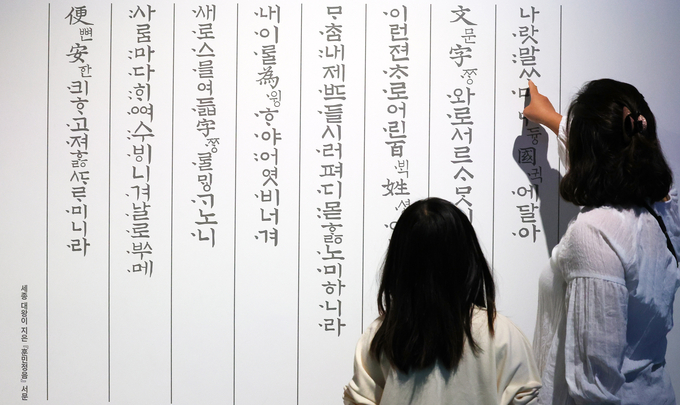 나랏말ᄊᆞ미 듕國귁에달아
文문字ᄍᆞᆼ와로서르ᄉᆞᄆᆞᆺ
이런젼ᄎᆞ로어린百ᄇᆡᆨ姓셩
ᄆᆞᄎᆞᆷ내제ᄠᅳ들시러펴디몯ᄒᆞᇙ노미하니라
내이ᄅᆞᆯ為윙ᄒᆞ야어엿비너겨
새로스믈여듧字ᄍᆞᆼᄅᆞᆯᄆᆡᇰᄀᆞ노니
사ᄅᆞᆷ마다ᄒᆡᅇᅧ수ᄫᅵ니겨날로ᄡᅮ메
便뼌安한킈ᄒᆞ고져ᄒᆞᇙᄯᆞᄅᆞ미니라
세종 대왕이 지은 『훈민정음』 서문